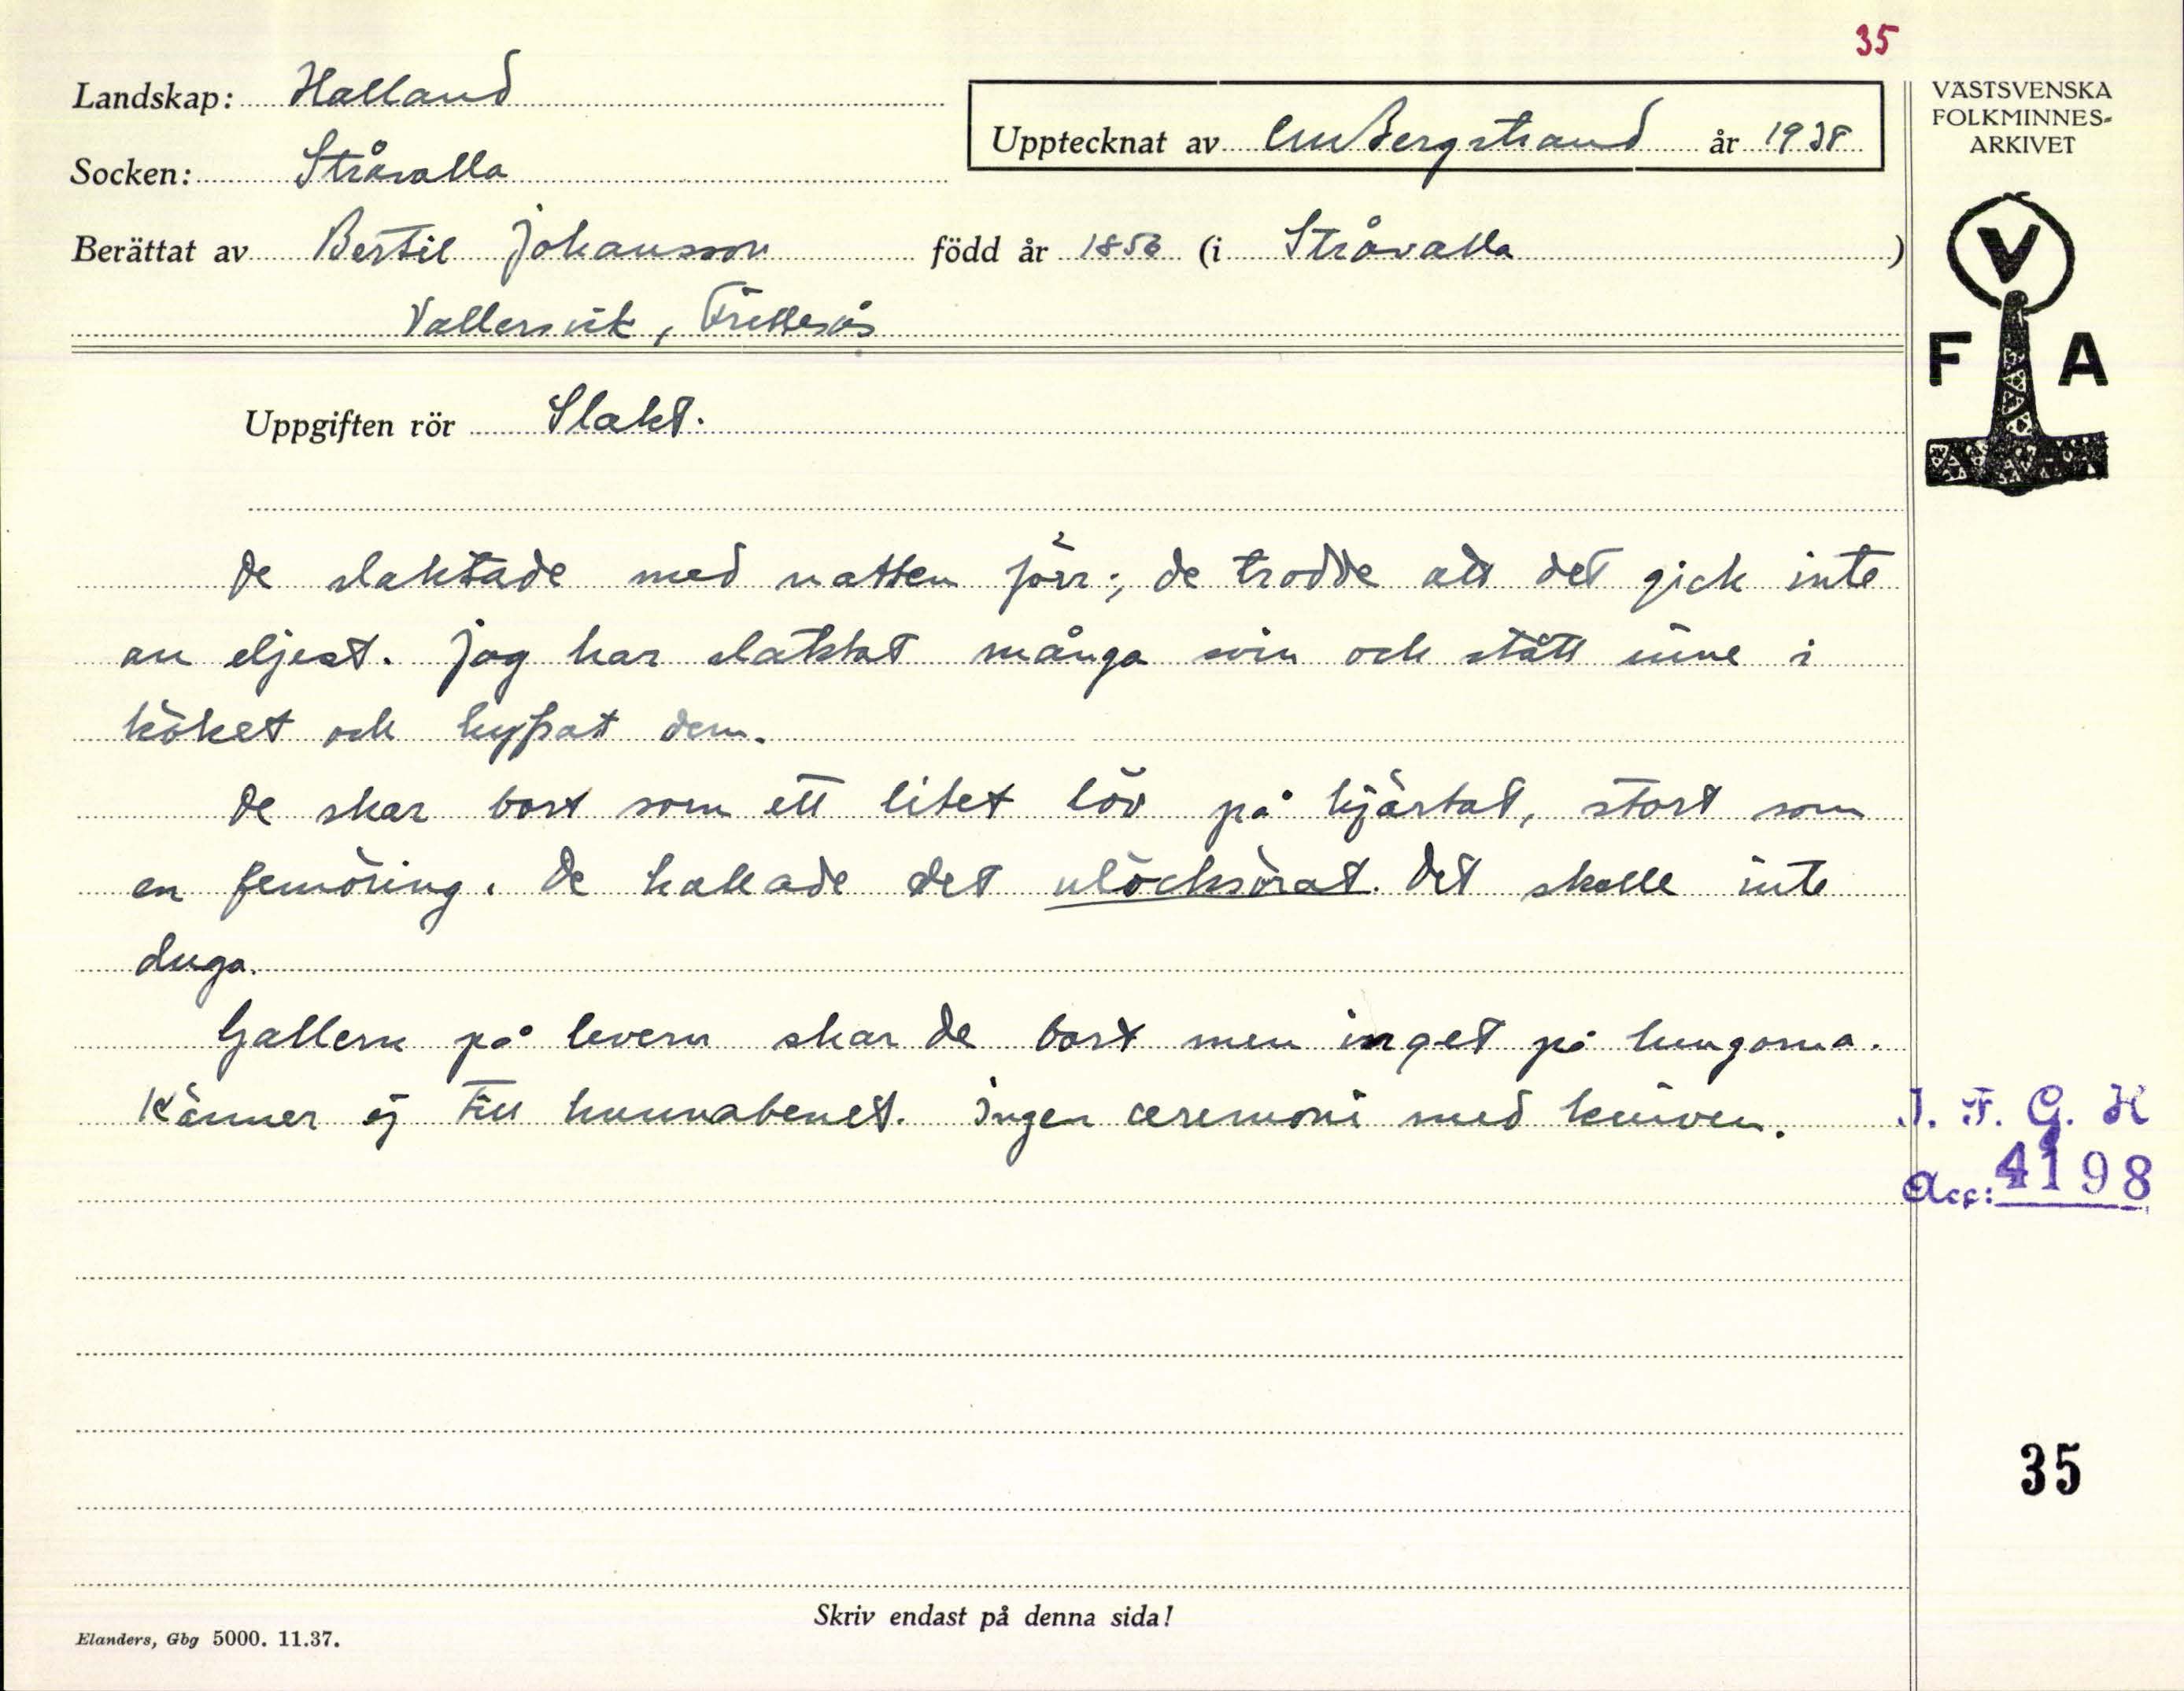 35
Landskap: Halland
Upptecknat av CM Bergstrand år 1938
VÄSTSVENSKA
FOLKMINNES-
ARKIVET
Socken: Stråvalla
Berättat av Bertil Johansson född år 1856 (i Stråvalla)
Vallersvik, Frillesås
V
F A
Uppgiften rör Slakt.
De slaktade med natten förr; de trodde att det gick inte
an eljest. Jag har slaktat många svin och stått inne i
köket och hyppat dem.
De skar bort som ett litet löv på hjärtat, stort som
en femöring. De kallade det ulöcksörat. Det skulle inte
duga.
Gallern på levern skar de bort men inget på lungorna.
Känner ej till hunnabenet. Ingen ceremoni med kniven.
I. F. G. H
Acc: 4198
35
Skriv endast på denna sida!
Elanders, Gbg 5000. 11.37.